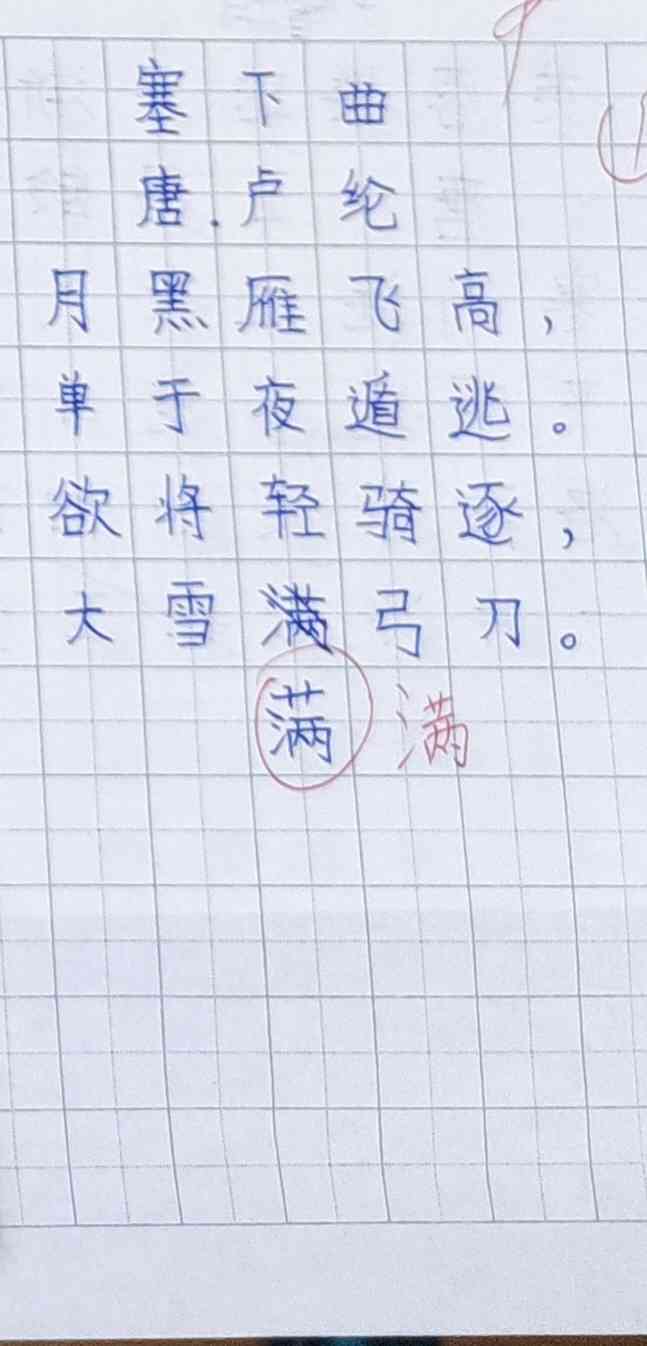 塞下曲
唐.卢纶
月黑雁飞高，
单于夜遁逃。
欲将轻骑逐，
大雪满弓刀。
满 满